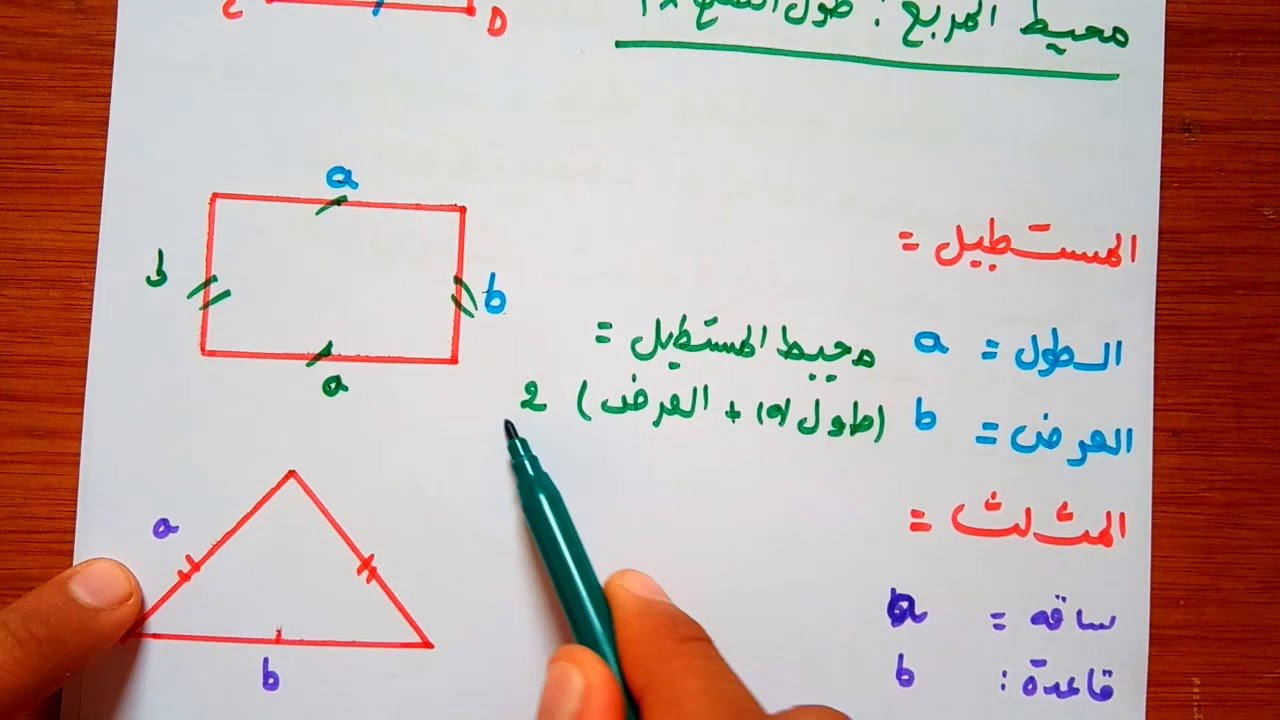 C D
محيط المربع : طول الضلع 4x
a
b
b
a
المستطيل =
الطول = a
العرض = b
محيط المستطيل =
(طول a + العرض) 2
a
b
المثلث =
ساقه = a
قاعدة : b